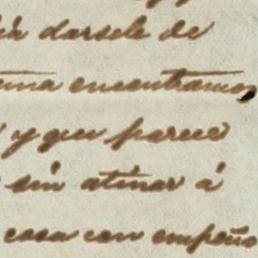 darsele de
una encontramos,
y que parece
sin atinar á
casa con empeño